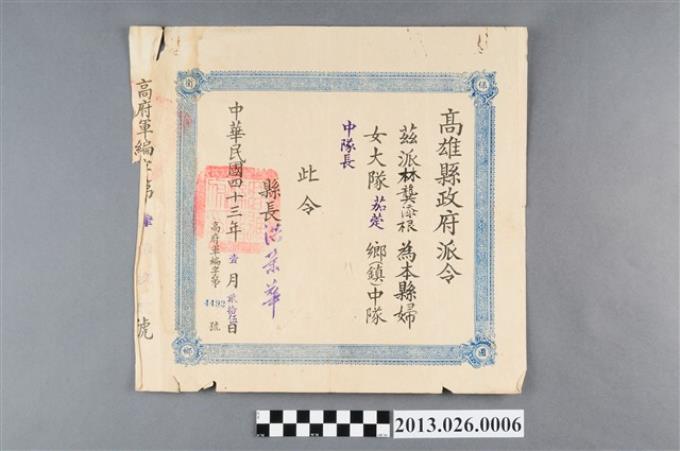 高雄縣政府派令
茲派林龔添根為本縣婦
女大隊茄萣鄉(鎮)中隊
中隊長
此令
縣長洪榮華
中華民國四十三年壹月貳拾伍日
高府軍編字第4492號
高府軍編字第
號
保
衛
鄉
國
2013.026.0006